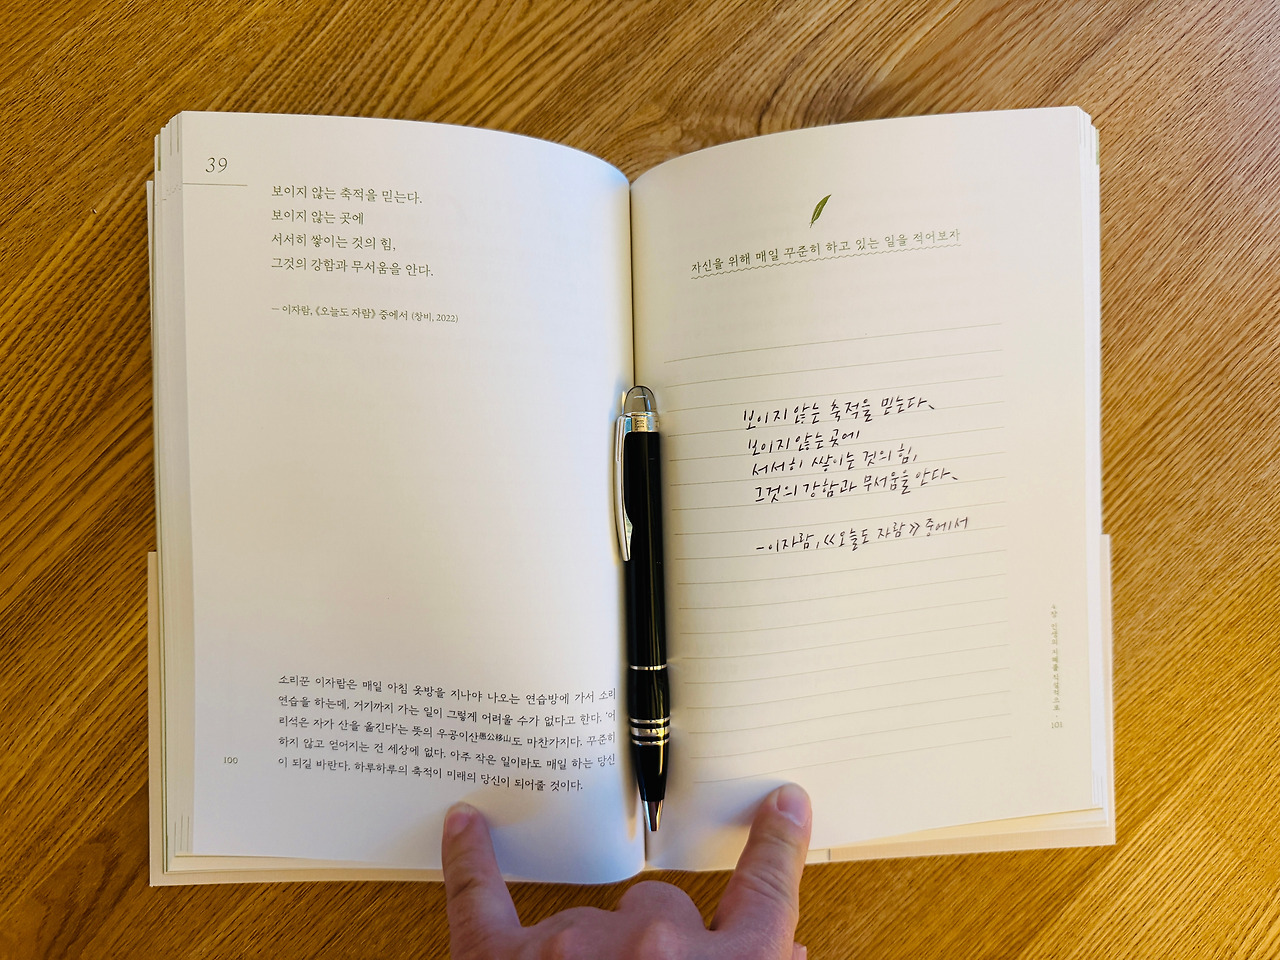 39
보이지 않는 축적을 믿는다.
보이지 않는 곳에
서서히 쌓이는 것의 힘,
그것의 강함과 무서움을 안다.
— 이자람, 《오늘도 자람》 중에서 (창비, 2022)
소리꾼 이자람은 매일 아침 옷방을 지나야 나오는 연습방에 가서 소리
연습을 하는데, 거기까지 가는 일이 그렇게 어려울 수가 없다고 한다. '어
리석은 자가 산을 옮긴다'는 뜻의 우공이산愚公移山도 마찬가지다. 꾸준히
하지 않고 얻어지는 건 세상에 없다. 아주 작은 일이라도 매일 하는 당신
이 되길 바란다. 하루하루의 축적이 미래의 당신이 되어줄 것이다.
100
자신을 위해 매일 꾸준히 하고 있는 일을 적어보자
보이지 않는 축적을 믿는다.
보이지 않는 곳에
서서히 쌓이는 것의 힘,
그것의 강함과 무서움을 안다.
- 이자람, 《오늘도 자람》 중에서
4장 인생의 지혜를
101